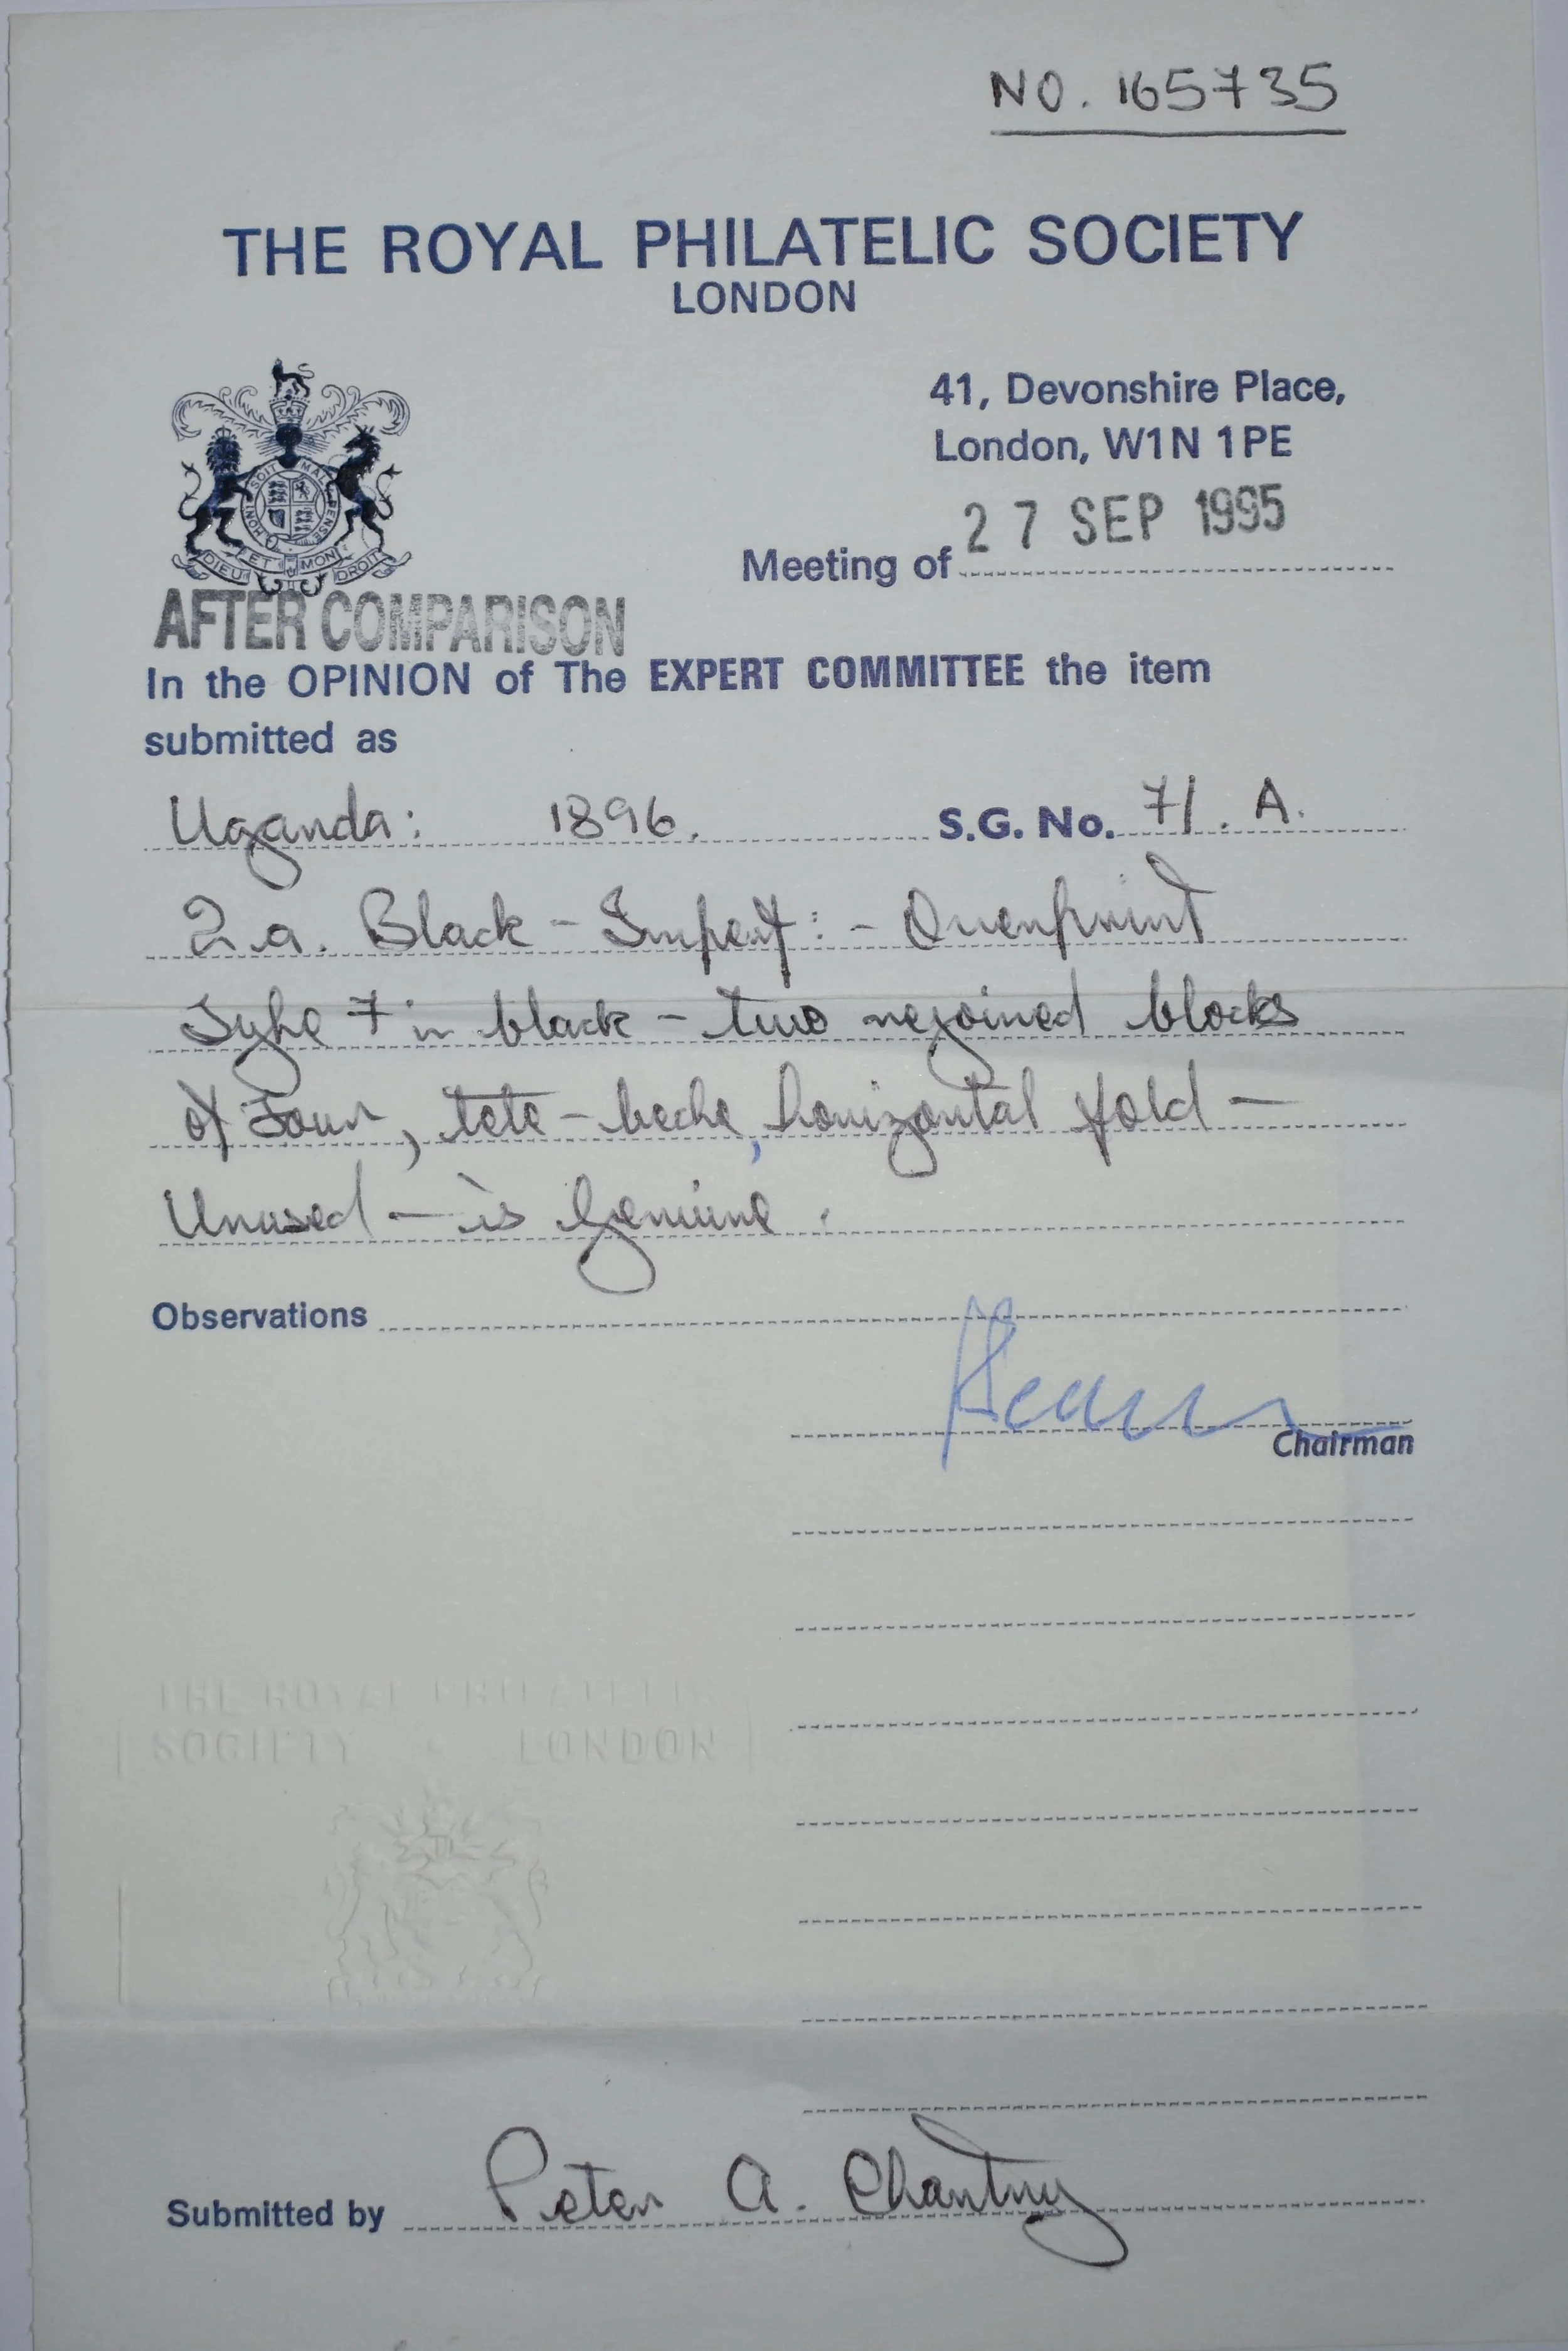 NO. 165735
THE ROYAL PHILATELIC SOCIETY
LONDON
41, Devonshire Place,
London, W1N 1PE
HONI SOIT MAL PENSE
DIEU ET MON DROIT
Meeting of 27 SEP 1995
AFTER COMPARISON
In the OPINION of The EXPERT COMMITTEE the item
submitted as
Uganda: 1896. S.G. No. 71. A.
2.a. Black - Imperf: - Overprint
Type 7 in black - two rejoined blocks
of Four, tete-beche, horizontal fold -
Unused - is Genuine.
Observations
Chairman
THE ROYAL PHILATELIC
SOCIETY LONDON
Submitted by Peter A. Chantry